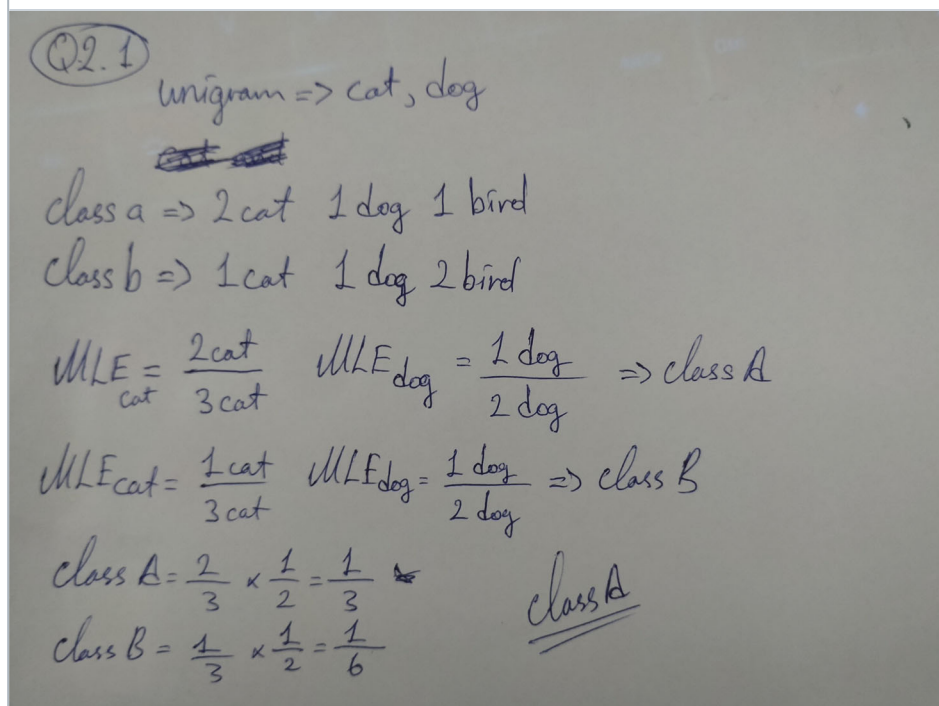 Q2.1
unigram => cat, dog
class a => 2 cat 1 dog 1 bird
class b => 1 cat 1 dog 2 bird
MLE cat = 2 cat / 3 cat MLE dog = 1 dog / 2 dog => class A
MLE cat = 1 cat / 3 cat MLE dog = 1 dog / 2 dog => class B
class A = 2/3 x 1/2 = 1/3
class B = 1/3 x 1/2 = 1/6
class A